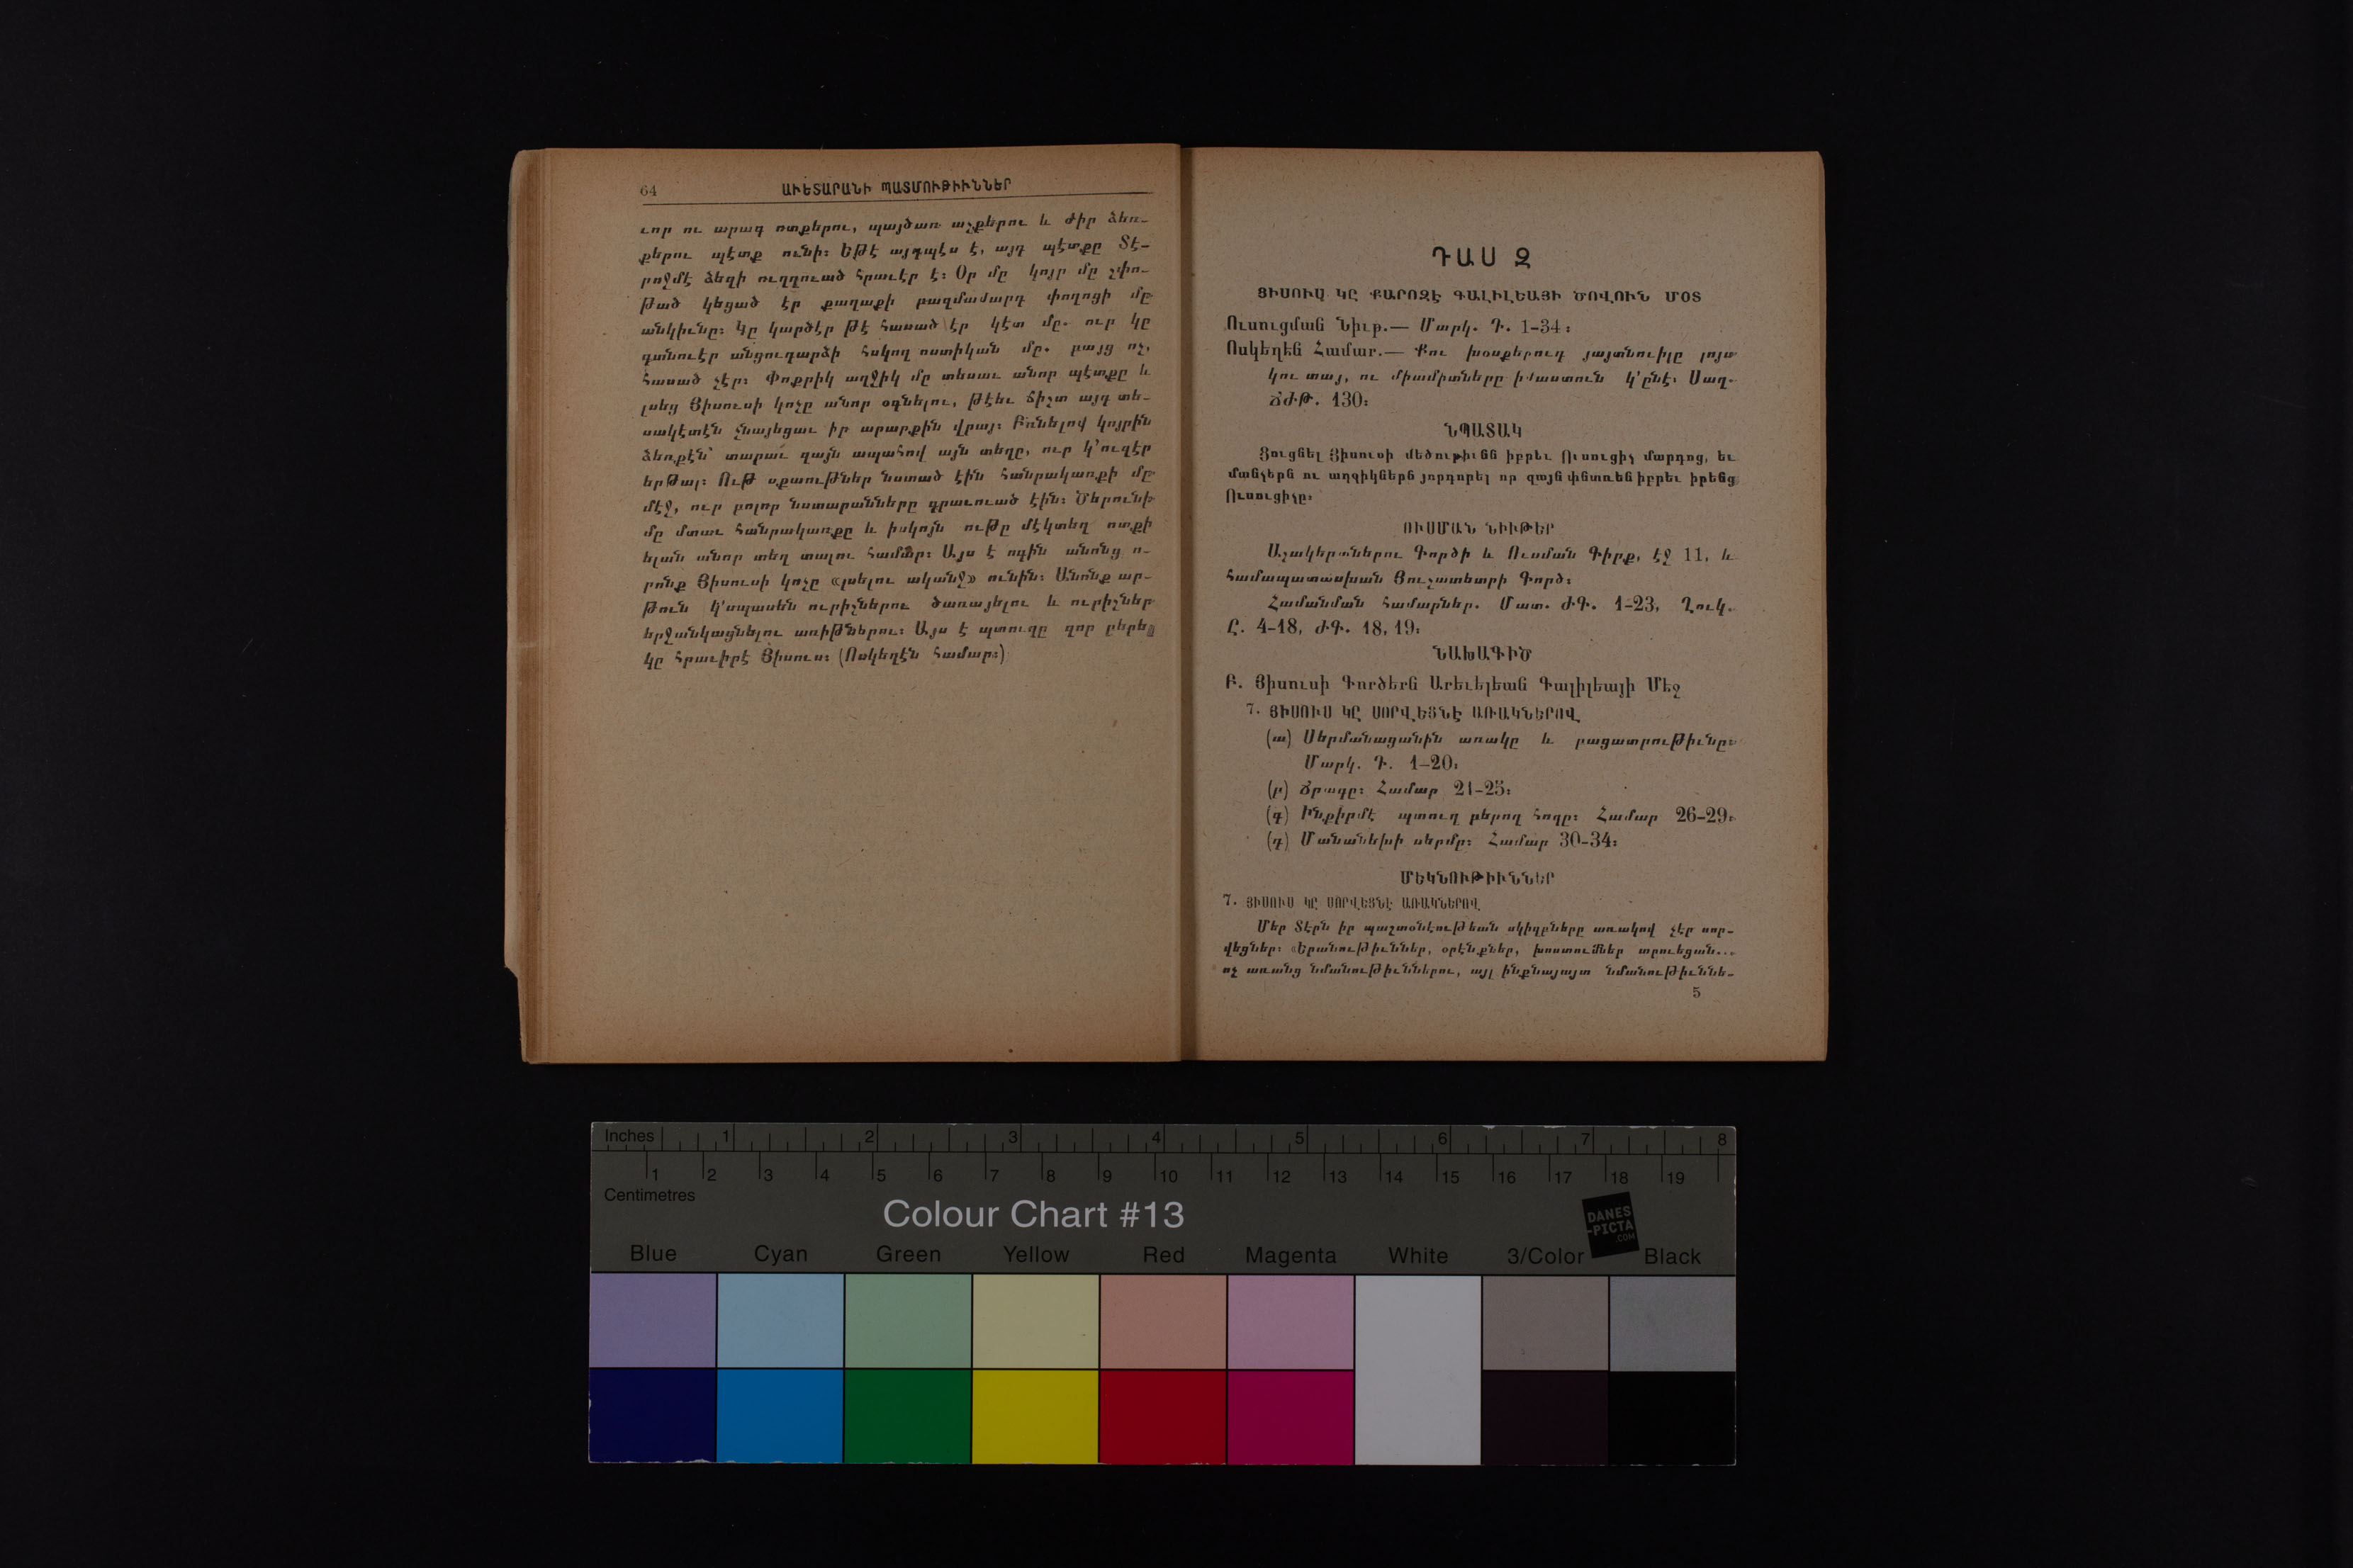 64 ԱՒԵՏԱՐԱՆԻ ՊԱՏՄՈՒԹԻՒՆՆԵՐ
ւոր ու արագ ոտքերու, պայծառ աչքերու և ժիր ձեռ-
քերու պէտք ունի։ Եթէ այդպէս է, այդ պէտքը Տէ-
րոջմէ ձեզի ուղղուած հրաւէր է։ Օր մը կոյր մը շփո-
թած կեցած էր քաղաքի բազմամարդ փողոցի մը
անկիւնը։ Կը կարծէր թէ հասած էր կէտ մը. ուր կը
գտնուէր անցուդարձի հսկող ոստիկան մը. բայց ոչ,
հասած չէր։ Փոքրիկ աղջիկ մը տեսաւ անոր պէտքը և
լսեց Յիսուսի կոչը անոր օգնելու, թէեւ ճիշտ այդ տե-
սակէտէն չնայեցաւ իր արարքին վրայ։ Բռնելով կոյրին
ձեռքէն՝ տարաւ զայն ապահով այն տեղը, ուր կ՚ուզէր
երթալ։ Ութ սքաութներ նստած էին հանրակառքի մը
մէջ, ուր բոլոր նստարանները գրաւուած էին։ Ծերունի
մը մտաւ հանրակառքը և իսկոյն ութը մէկտեղ ոտքի
ելան անոր տեղ տալու համար։ Այս է ոգին անոնց ո-
րոնք Յիսուսի կոչը «լսելու ականջ» ունին։ Անոնք ար-
թուն կ՚սպասեն ուրիշներու ծառայելու և ուրիշներ
երջանկացնելու առիթներու։ Այս է պտուղը զոր բերել
կը հրաւիրէ Յիսուս։ (Ոսկեղէն համար։)
ԴԱՍ Զ
ՅԻՍՈՒՍ ԿԸ ՔԱՐՈԶԷ ԳԱԼԻԼԵԱՅԻ ԾՈՎՈՒՆ ՄՕՏ
Ուսուցման Նիւթ.— Մարկ. Դ. 1-34։
Ոսկեղէն Համար.— Քու խօսքերուդ յայտնուիլը լոյս
կու տայ, ու միամիտները իմաստուն կ՚ընէ։ Սաղ.
ՃԺԹ. 130։
ՆՊԱՏԱԿ
Ցուցնել Յիսուսի մեծութիւնն իբրեւ Ուսուցիչ մարդոց, եւ
մանչերն ու աղջիկներն յորդորել որ զայն փնտռեն իբրեւ իրենց
Ուսուցիչը։
ՈՒՍՄԱՆ ՆԻՒԹԵՐ
Աշակերտներու Գործի և Ուսման Գիրք, էջ 11, և
համապատասխան Ցուչատետրի Գործ։
Համանման համարներ. Մատ. ԺԳ. 1-23, Ղուկ.
Ը. 4-18, ԺԳ. 18, 19։
ՆԱԽԱԳԻԾ
Բ. Յիսուսի Գործերն Արեւելեան Գալիլեայի Մէջ
7. ՅԻՍՈՒՍ ԿԸ ՍՈՐՎԵՑՆԷ ԱՌԱԿՆԵՐՈՎ
(ա) Սերմնացանին առակը և բացատրութիւնը։
Մարկ. Դ. 1-20։
(բ) Ճրագը։ Համար 21-25։
(գ) Ինքիրմէ պտուղ բերող հողը։ Համար 26-29։
(դ) Մանանեխի սերմը։ Համար 30-34։
ՄԵԿՆՈՒԹԻՒՆՆԵՐ
7. ՅԻՍՈՒՍ ԿԸ ՍՈՐՎԵՑՆԷ ԱՌԱԿՆԵՐՈՎ
Մեր Տէրն իր պաշտօնէութեան սկիզբները առակով չէր սոր-
վեցներ։ «Երանութիւններ, օրէնքներ, խոստումներ տրուեցան...
ոչ առանց նմանութիւններու, այլ ինքնայայտ նմանութիւննե-
5
Inches 1 2 3 4 5 6 7 8
1 2 3 4 5 6 7 8 9 10 11 12 13 14 15 16 17 18 19
Centimetres
Colour Chart #13
DANES
-PICTA
.COM
Blue Cyan Green Yellow Red Magenta White 3/Color Black